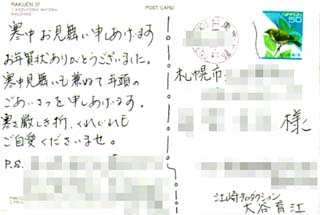 RAKUEN 37
POST CARD
NIPPON
50
寒中お見舞い申しあげます
お年賀状ありがとうございました。
寒中見舞いも兼ねて年頭の
ごあいさつを申しあげます。
寒さ厳しき折、くれぐれも
ご自愛くださいませ。
P.S.
札幌市
様
江崎プロダクション
大谷育江